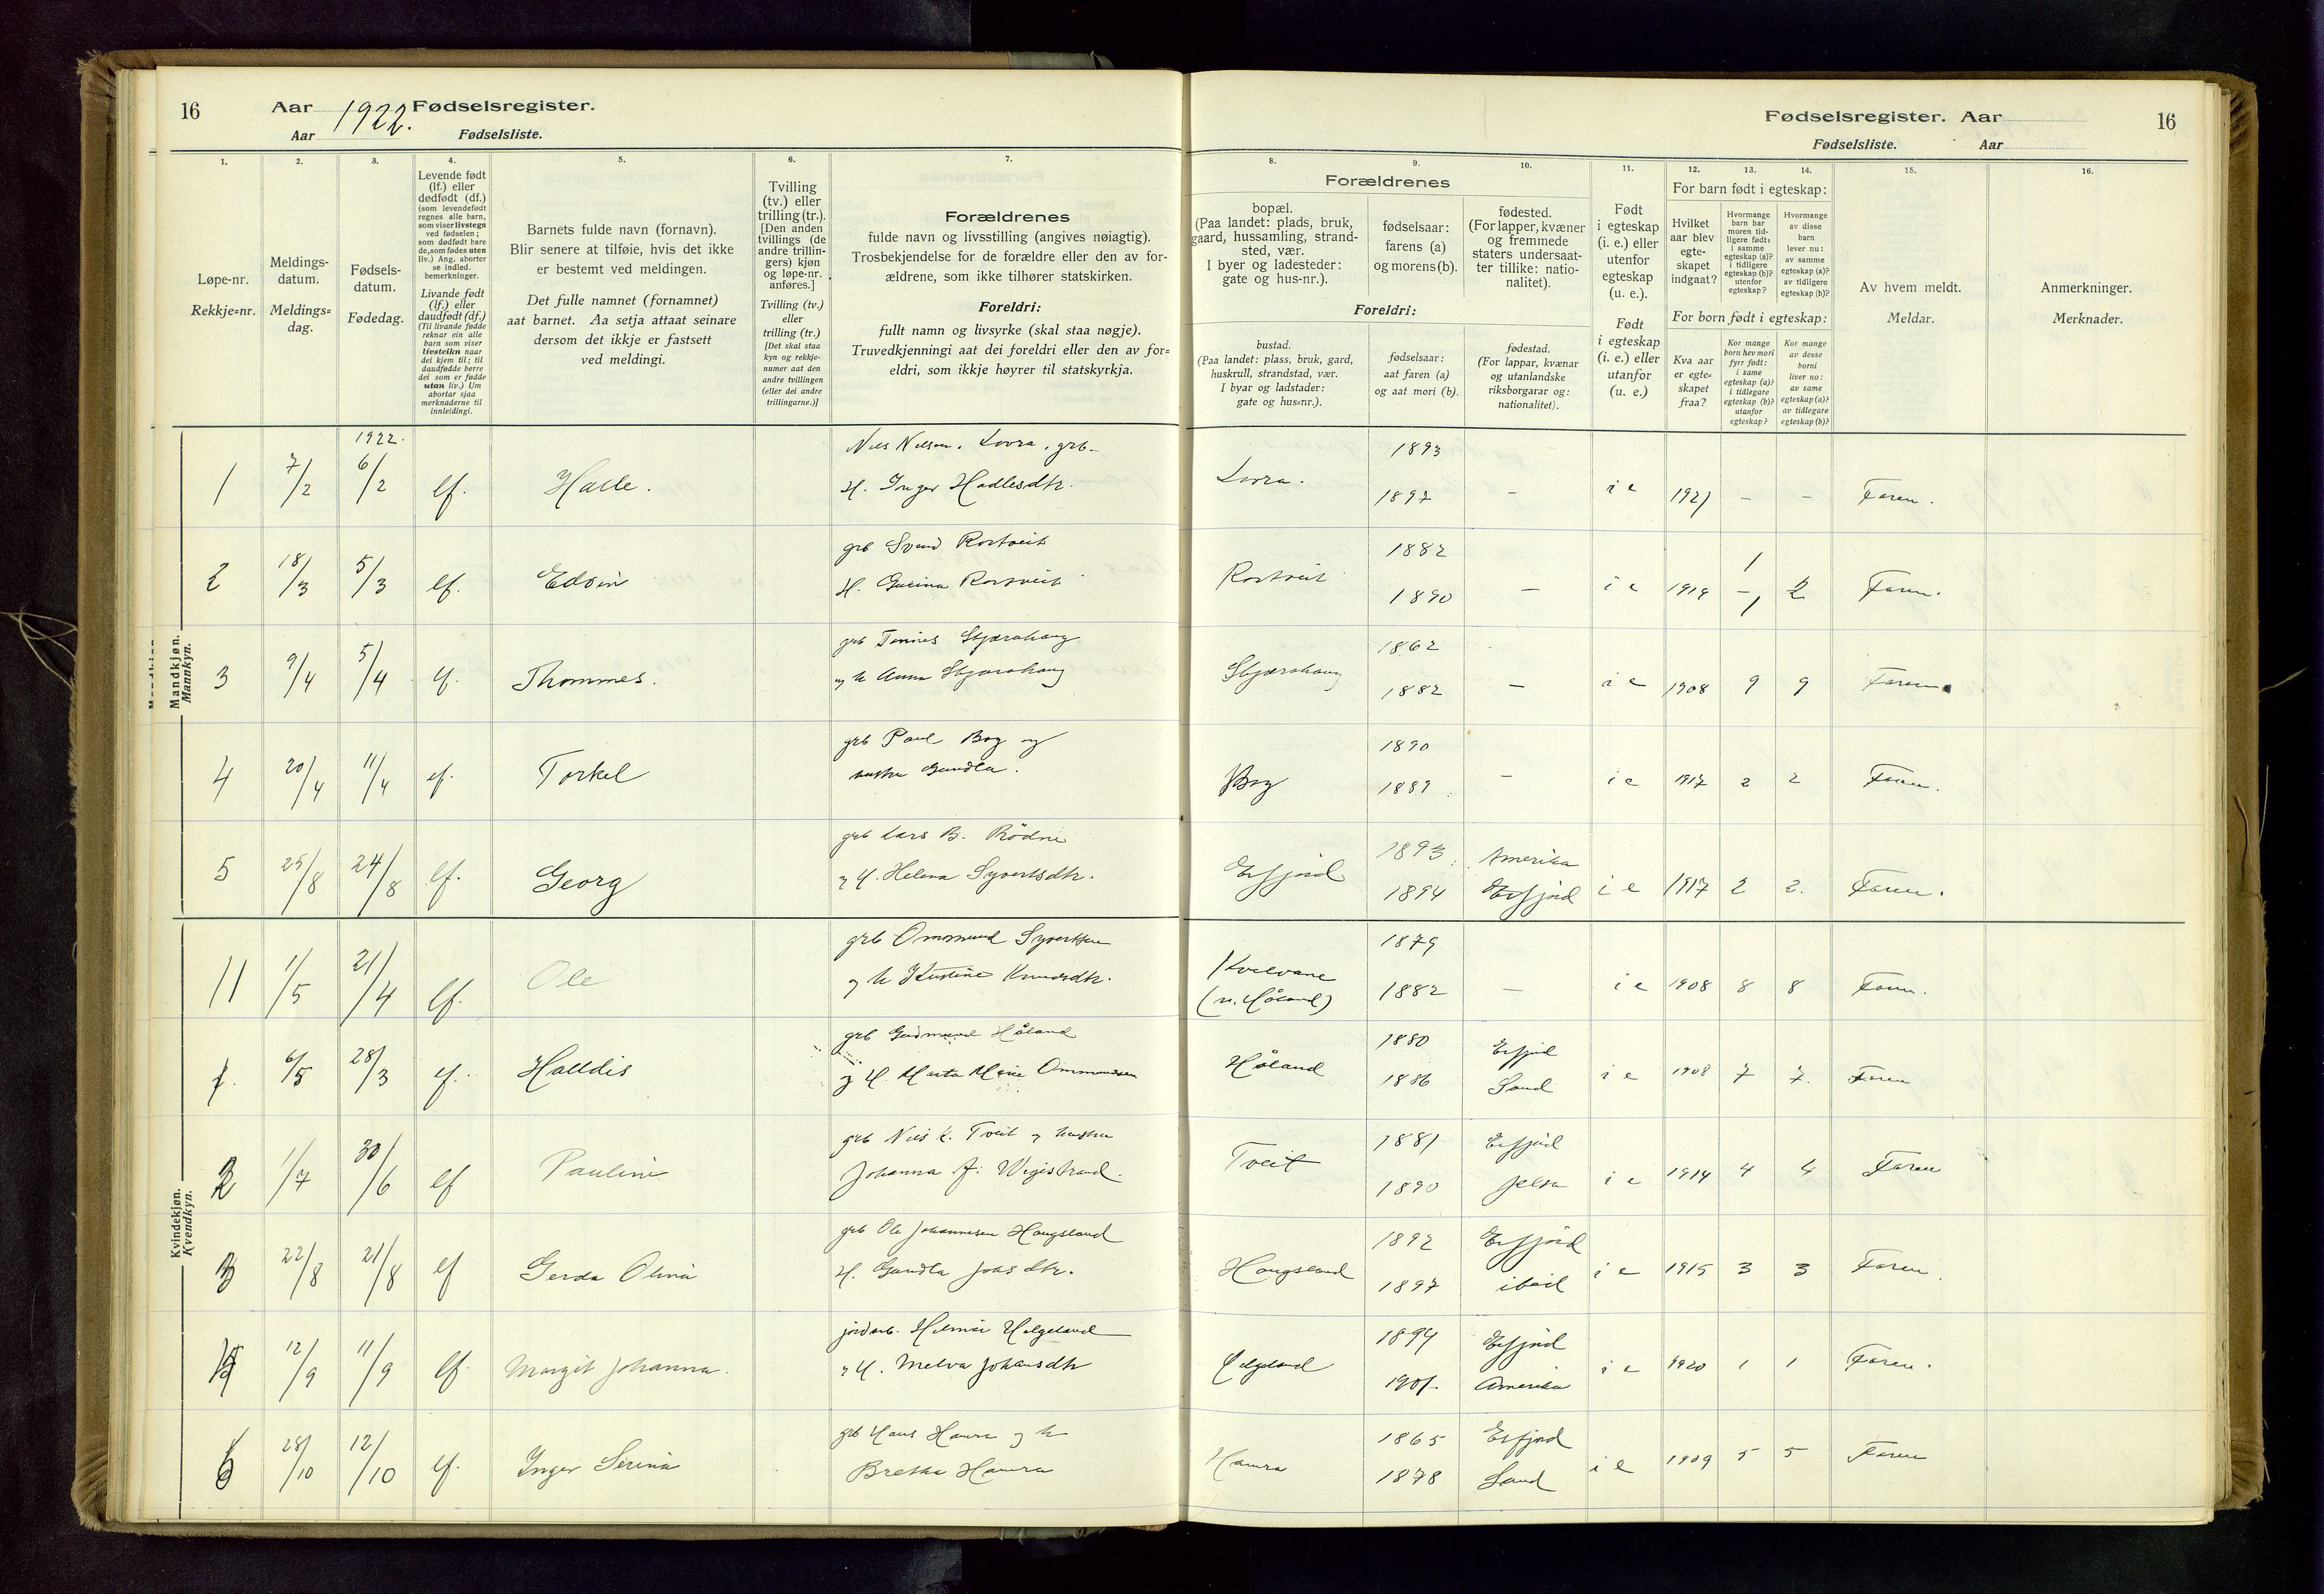 16 Aar 1922. Fødselsregister.
Aar Fødselsliste.
Fødselsregister. Aar 16
Fødselsliste. Aar
1.
Løpe-nr.
Rekkje=nr.
2.
Meldings-
datum.
Meldings=
dag.
3.
Fødsels-
datum.
Fødedag.
4.
Levende født
(lf.) eller
dødfødt (df.)
(som levendefødt
regnes alle barn,
som viser livstegn
ved fødselen;
som dødfødt bare
de, som fødes uten
liv.) Ang. aborter
se indled.
bemerkninger.
Livande født
(lf.) eller
daudfødt (df.)
(Til livande fødde
reknar ein alle
barn som viser
livsteikn naar
dei kjem til; til
daudfødde berre
dei som er fødde
utan liv.) Um
abortar sjaa
merknaderne til
innleidingi.
5.
Barnets fulde navn (fornavn).
Blir senere at tilføie, hvis det ikke
er bestemt ved meldingen.
Det fulle namnet (fornamnet)
aat barnet. Aa setja attaat seinare
dersom det ikkje er fastsett
ved meldingi.
6.
Tvilling
(tv.) eller
trilling (tr.).
[Den anden
tvillings (de
andre trillin-
gers) kjøn
og løpe-nr.
anføres.]
Tvilling (tv.)
eller
trilling (tr.)
[Det skal staa
kyn og rekkje-
numer aat den
andre tvillingen
(eller dei andre
trillingarne.)]
7.
Forældrenes
fulde navn og livsstilling (angives nøiagtig).
Trosbekjendelse for de forældre eller den av for-
ældrene, som ikke tilhører statskirken.
Foreldri:
fullt namn og livsyrke (skal staa nøgje).
Truvedkjenningi aat dei foreldri eller den av for=
eldri, som ikkje høyrer til statskyrkja.
8. 9. 10.
Forældrenes
bopæl.
(Paa landet: plads, bruk,
gaard, hussamling, strand-
sted, vær.
I byer og ladesteder:
gate og hus-nr.).
fødselsaar:
farens (a)
og morens (b).
fødested.
(For lapper, kvæner
og fremmede
staters undersaat-
ter tillike: natio-
nalitet).
Foreldri:
bustad.
(Paa landet: plass, bruk, gard,
huskrull, strandstad, vær.
I byar og ladstader:
gate og hus=nr.).
fødselsaar:
aat faren (a)
og aat mori (b).
fødestad.
(For lappar, kvænar
og utanlandske
riksborgarar og:
nationalitet).
11.
Født
i egteskap
(i. e.) eller
utenfor
egteskap
(u. e.).
Født
i egteskap
(i. e.) eller
utanfor
(u. e.)
12. 13. 14.
For barn født i egteskap:
Hvilket
aar blev
egte-
skapet
indgaat?
Hvormange
barn har
moren tid-
ligere født:
i samme
egteskap (a)?
i tidligere
egteskap (b)?
utenfor
egteskap?
Hvormange
av disse
barn
lever nu:
av samme
egteskap (a)?
av tidligere
egteskap (b)?
For born født i egteskap:
Kva aar
er egte=
skapet
fraa?
Kor mange
born hev mori
fyrr født:
i same
egteskap (a)?
i tidlegare
egteskap (b)?
utanfor
egteskap?
Kor mange
av desse
borni
liver no:
av same
egteskap (a)?
av tidlegare
egteskap (b)?
15.
Av hvem meldt.
Meldar.
16.
Anmerkninger.
Merknader.
Mandkjøn.
Mannkyn.
1922.
1 7/2 6/2 lf. Halle. Nils Nilsen. Lovra, grb. Lovra. 1893
H. Inger Hadlesdtr. 1897 – i e 1921 – – Faren.
2 18/3 5/3 lf. Edvin grb Svend Rostveit Rostveit 1882
1890 – i e 1914 1 2 Faren.
3 9/4 5/4 lf. Thommes. grb Tønnes Skjærahaug Skjærahaug 1862
og h Anna Skjærahaug 1882 – i e 1908 9 9 Faren
4 20/4 11/4 lf. Torkel grb Paul Bog og Bog 1890
hustru Gundla. 1889 – i e 1917 2 2 Faren.
5 25/8 24/8 lf. Georg grb Lars B. Rödne Erfjord 1893 Amerika
og H. Helena Syvertsdtr. 1894 Erfjord i e 1917 2 2. Faren.
11 1/5 21/4 lf. Ole grb Ommund Syvertsen Kvelvane 1879
og h Kristine Knudsdtr. (u. Håland) 1882 – i e 1908 8 8 Faren.
Kvindekjøn.
Kvendkyn.
1. 6/5 28/3 lf. Halldis grb Gudmund Håland Håland 1880 Erfjord
og H. Marta Marie Ommundsen 1886 Sand i e 1908 7 7. Faren
2 1/7 30/6 lf Pauline grb Nils K. Tveit og hustru Tveit 1881 Erfjord
Johanna J. Wigestrand. 1890 Jelsa i e 1914 4 4 Faren
3 22/8 21/8 lf Gerda Olina grb Ole Johannesen Haugsland Haugsland 1892 Erfjord
H. Gundla Johsdtr. 1897 ibid i e 1915 3 3 Faren.
4 12/9 11/9 lf. Margit Johanna. jordarb. Hilmar Helgeland Helgeland 1894 Erfjord
og H. Melva Johansdtr 1901. Amerika i e 1920 1 1 Faren.
6 28/10 12/10 lf. Inger Serina grb Hans Hamra og h Hamra 1865 Erfjord
Bretha Hamra 1878 Sand i e 1909 5 5 Faren